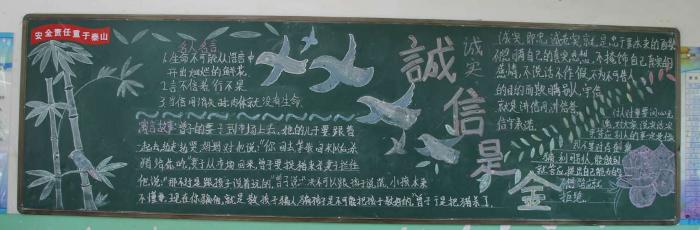 安全责任重于泰山
名人名言
1.生命不可能从谎言中
开出灿烂的鲜花
2.言不信者行不果
3.当信用消失时肉体就没有生命
寓言故事:曾子的妻子到市场上去,他的儿子要跟着
一起去,一边走,一边哭。妈妈对他说:"你回去,等我回来以后,杀
猪给你吃。"妻子从市场回来,曾子要捉猪来杀,妻子拦住
他说:"那不过是跟孩子说着玩的。"曾子说:"决不可以跟孩子说谎。小孩本来
不懂事,现在你骗他,就是教孩子骗人,骗孩子是不可能把孩子教好的。"曾子于是把猪杀了。
誠信是金
诚实
诚实,即忠诚老实,就是忠于事物本来的面貌
不隐瞒自己的真实思想,不掩饰自己真实的
感情,不说谎,不作假,不为不可告人
的目的而欺瞒别人。守信
就是讲信用,讲信誉
信守承诺
拒绝